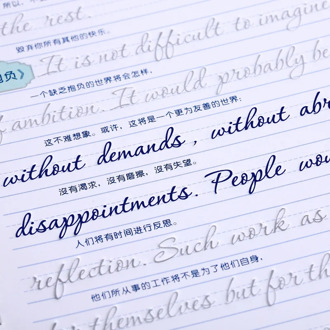 所以，不
the rest.
毁弃你所有其他的快乐。
It is not difficult to imagine
抱负》
一个缺乏抱负的世界将会怎样，
of ambition. It would probably be
这不难想象。或许，这将是一个更为友善的世界：
without demands , without abr
没有渴求，没有磨擦，没有失望。
disappointments. People wou
人们将有时间进行反思。
reflection. Such work as
他们所从事的工作将不是为了他们自身，
for themselves but for th